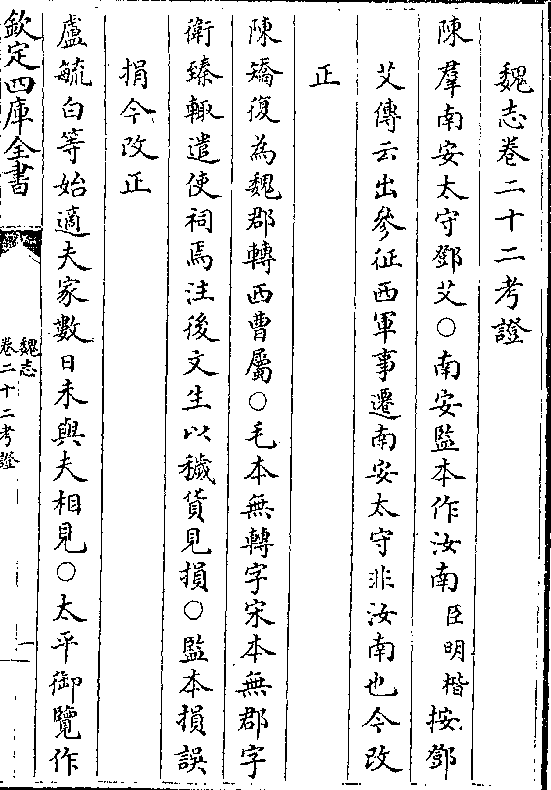 魏志卷二十二考證
陳羣南安太守鄧艾○南安監本作汝南臣明楷按鄧
艾傳云出參征西軍事遷南安太守非汝南也今改
正
陳矯復為魏郡轉西曹屬○毛本無轉字宋本無郡字
衛臻輙遣使祠焉注後文生以穢貨見損○監本損誤
捐今改正
盧毓白等始適夫家數日未與夫相見○太平御覽作
欽定四庫全書
魏志
卷二十二考證
一